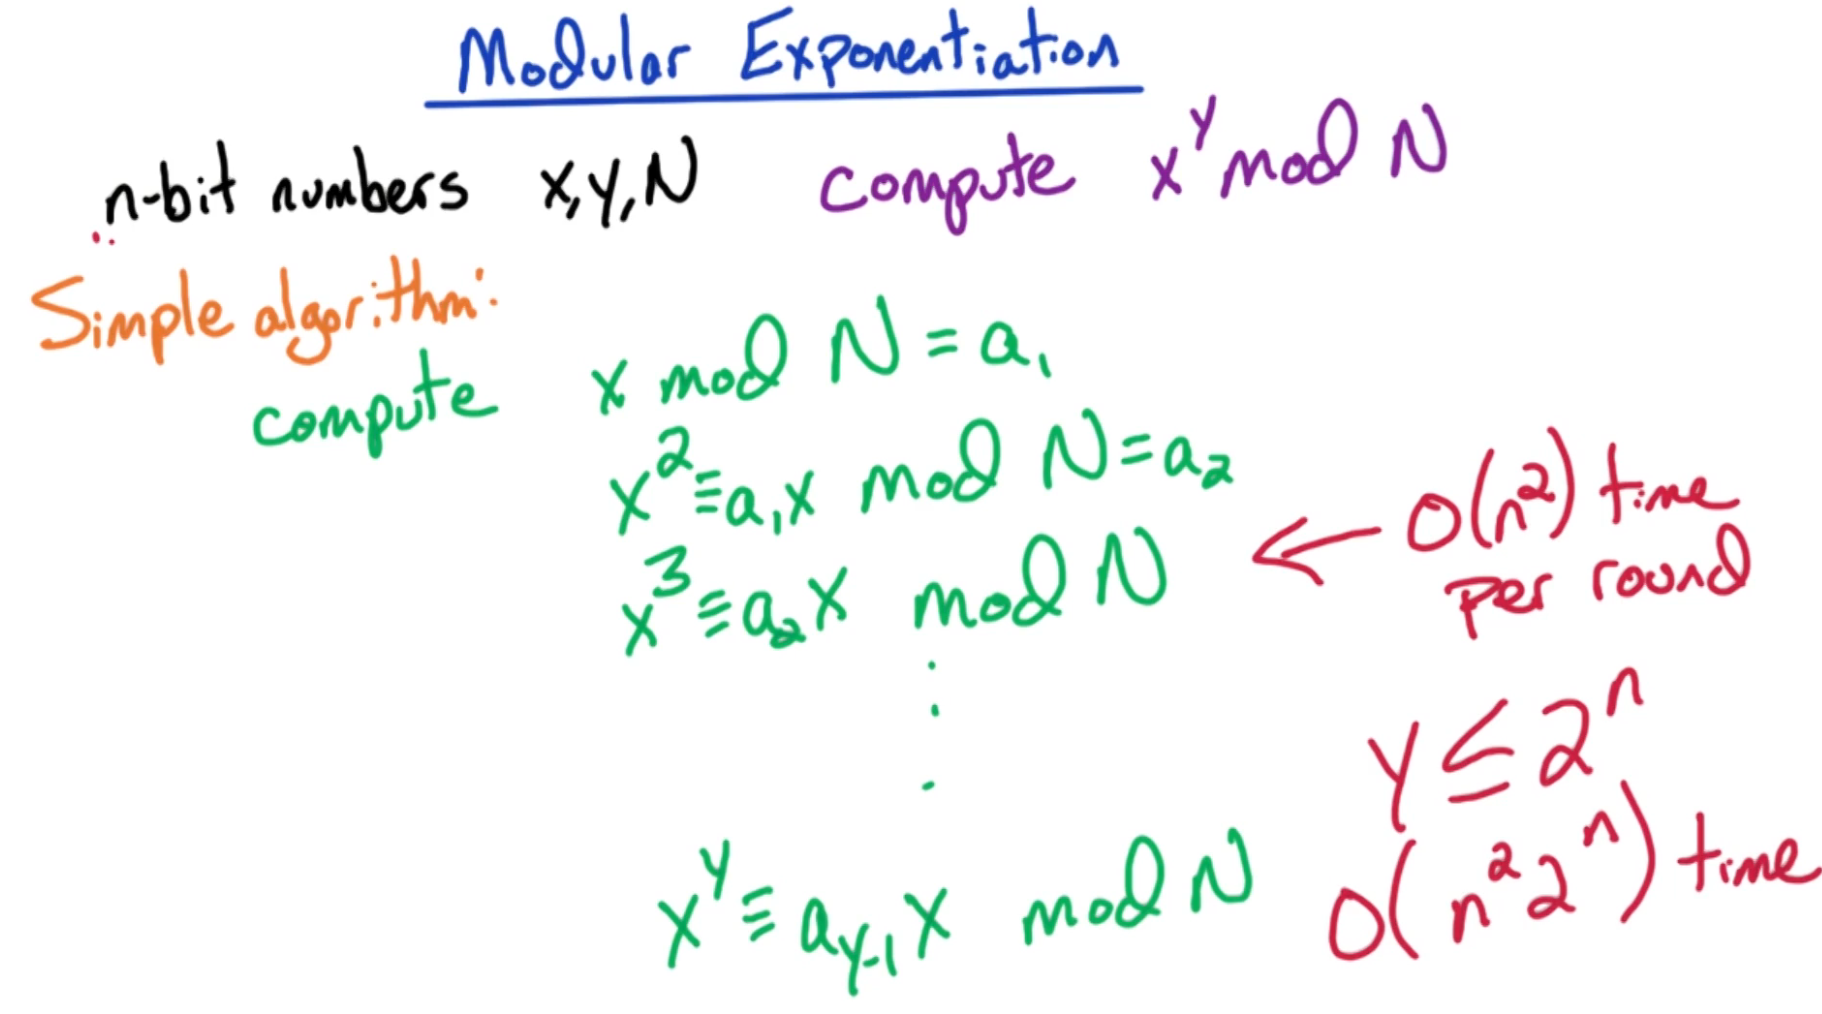 Modular Exponentiation
n-bit numbers x,y,N compute x^y mod N
Simple algorithm:
compute x mod N = a₁
x² ≡ a₁x mod N = a₂
x³ ≡ a₂x mod N
← O(n²) time
per round
⋮
y ≤ 2^n
x^y ≡ a_{y-1}x mod N
O(n²2^n) time